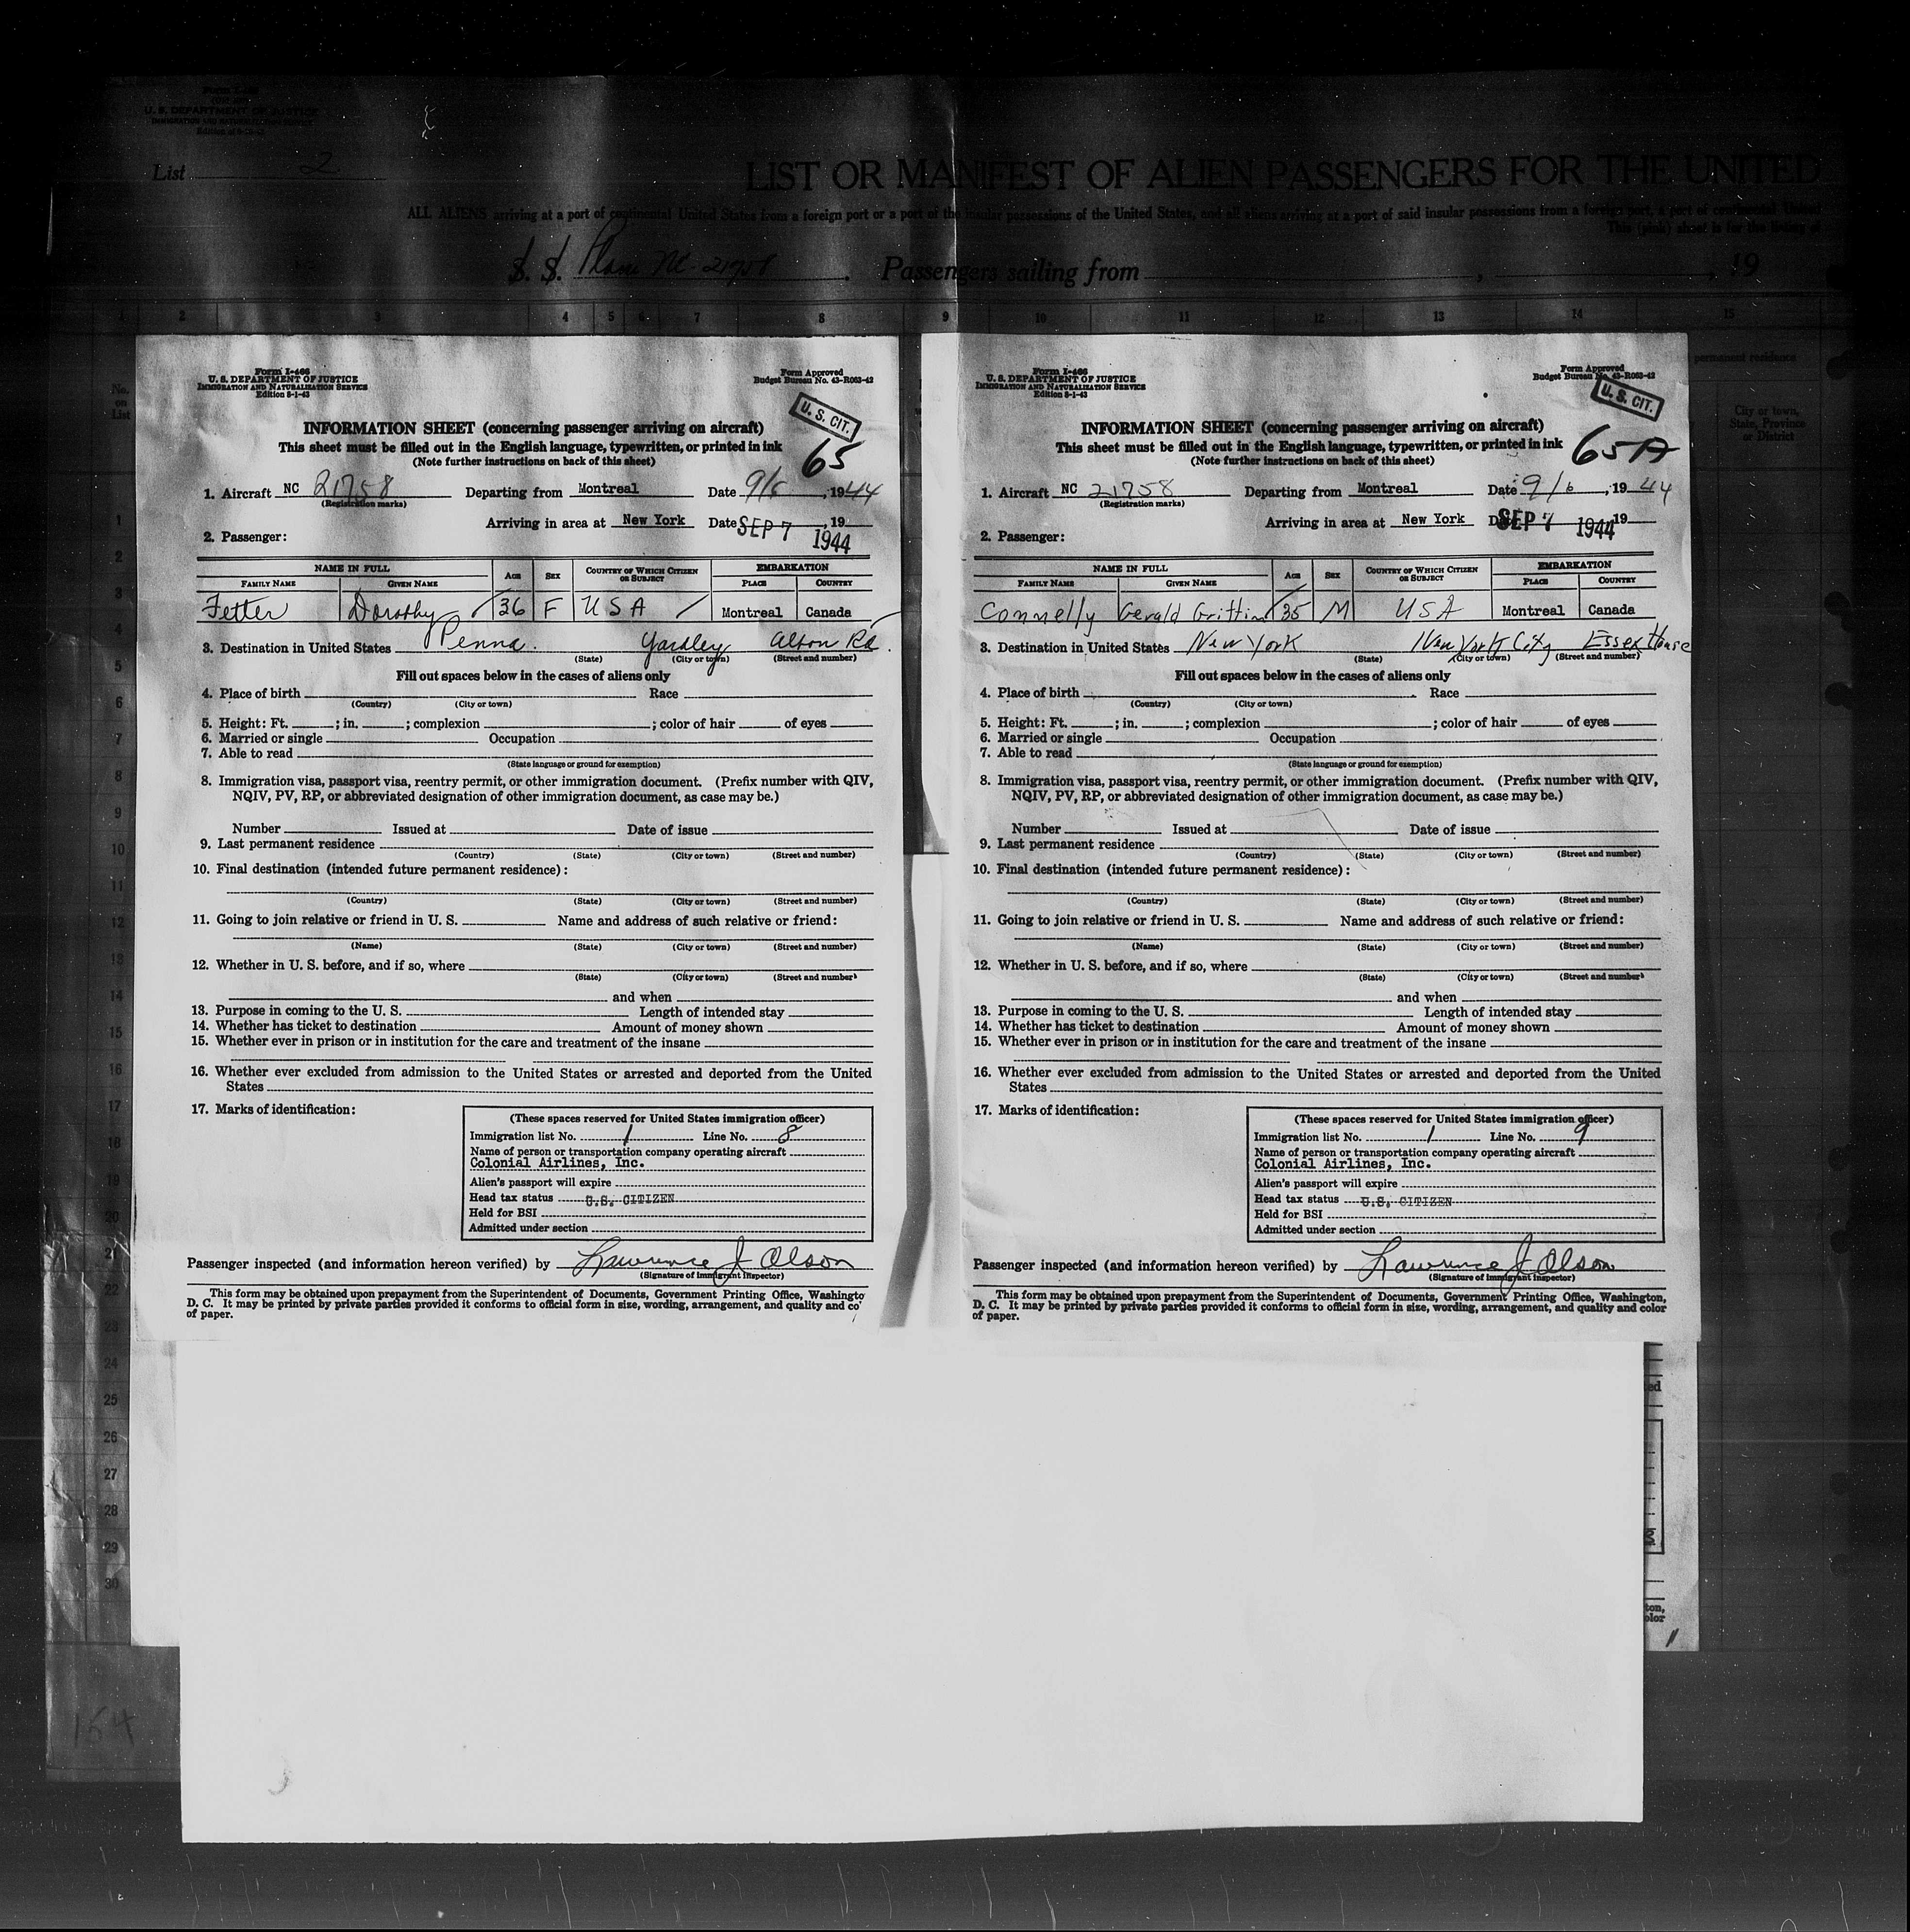 Form I-466
U. S. DEPARTMENT OF JUSTICE
IMMIGRATION AND NATURALIZATION SERVICE
List 2
LIST OR MANIFEST OF ALIEN PASSENGERS FOR THE UNITED
ALL ALIENS arriving at a port of continental United States from a foreign port or a port of the insular possessions of the United States, and all aliens arriving at a port of said insular possessions from a foreign port, a port of continental United
This (pink) sheet is for the listing of
S. S. Plane NC-21758. Passengers sailing from , , 19
1 2 3 4 5 6 7 8 9 10 11 12 13 14 15
permanent residence
No. on List
City or town, State, Province or District
1
2
3
4
5
6
7
8
9
10
11
12
13
14
15
16
17
18
19
20
21
22
23
24
25
26
27
28
29
30
154
Form I-466
U. S. DEPARTMENT OF JUSTICE
IMMIGRATION AND NATURALIZATION SERVICE
Edition 8-1-43
Form Approved
Budget Bureau No. 43-R063-42
U. S. CIT.
65
INFORMATION SHEET (concerning passenger arriving on aircraft)
This sheet must be filled out in the English language, typewritten, or printed in ink
(Note further instructions on back of this sheet)
1. Aircraft NC 21758 Departing from Montreal Date 9/6, 1944
(Registration marks)
Arriving in area at New York Date SEP 7 1944, 19
2. Passenger:
NAME IN FULL AGE SEX COUNTRY OF WHICH CITIZEN OR SUBJECT EMBARKATION
FAMILY NAME GIVEN NAME PLACE COUNTRY
Fetter Dorothy 36 F USA Montreal Canada
3. Destination in United States Penna. Yardley Alton Rd.
(State) (City or town) (Street and number)
Fill out spaces below in the cases of aliens only
4. Place of birth Race
(Country) (City or town)
5. Height: Ft. ; in. ; complexion ; color of hair of eyes
6. Married or single Occupation
7. Able to read
(State language or ground for exemption)
8. Immigration visa, passport visa, reentry permit, or other immigration document. (Prefix number with QIV,
NQIV, PV, RP, or abbreviated designation of other immigration document, as case may be.)
Number Issued at Date of issue
9. Last permanent residence
(Country) (State) (City or town) (Street and number)
10. Final destination (intended future permanent residence):
(Country) (State) (City or town) (Street and number)
11. Going to join relative or friend in U. S. Name and address of such relative or friend:
(Name) (State) (City or town) (Street and number)
12. Whether in U. S. before, and if so, where
(State) (City or town) (Street and number)
and when
13. Purpose in coming to the U. S. Length of intended stay
14. Whether has ticket to destination Amount of money shown
15. Whether ever in prison or in institution for the care and treatment of the insane
16. Whether ever excluded from admission to the United States or arrested and deported from the United
States
17. Marks of identification:
(These spaces reserved for United States immigration officer)
Immigration list No. 1 Line No. 8
Name of person or transportation company operating aircraft
Colonial Airlines, Inc.
Alien's passport will expire
Head tax status U.S. CITIZEN
Held for BSI
Admitted under section
Passenger inspected (and information hereon verified) by Lawrence J Olson
(Signature of immigrant inspector)
This form may be obtained upon prepayment from the Superintendent of Documents, Government Printing Office, Washingto
D. C. It may be printed by private parties provided it conforms to official form in size, wording, arrangement, and quality and co
of paper.
Form I-466
U. S. DEPARTMENT OF JUSTICE
IMMIGRATION AND NATURALIZATION SERVICE
Edition 8-1-43
Form Approved
Budget Bureau No. 43-R063-42
U. S. CIT.
65A
INFORMATION SHEET (concerning passenger arriving on aircraft)
This sheet must be filled out in the English language, typewritten, or printed in ink
(Note further instructions on back of this sheet)
1. Aircraft NC 21758 Departing from Montreal Date 9/6, 1944
(Registration marks)
Arriving in area at New York Date SEP 7 1944 19
2. Passenger:
NAME IN FULL AGE SEX COUNTRY OF WHICH CITIZEN OR SUBJECT EMBARKATION
FAMILY NAME GIVEN NAME PLACE COUNTRY
Connelly Gerald Griffin 35 M USA Montreal Canada
3. Destination in United States New York New York City Essex House
(State) (City or town) (Street and number)
Fill out spaces below in the cases of aliens only
4. Place of birth Race
(Country) (City or town)
5. Height: Ft. ; in. ; complexion ; color of hair of eyes
6. Married or single Occupation
7. Able to read
(State language or ground for exemption)
8. Immigration visa, passport visa, reentry permit, or other immigration document. (Prefix number with QIV,
NQIV, PV, RP, or abbreviated designation of other immigration document, as case may be.)
Number Issued at Date of issue
9. Last permanent residence
(Country) (State) (City or town) (Street and number)
10. Final destination (intended future permanent residence):
(Country) (State) (City or town) (Street and number)
11. Going to join relative or friend in U. S. Name and address of such relative or friend:
(Name) (State) (City or town) (Street and number)
12. Whether in U. S. before, and if so, where
(State) (City or town) (Street and number)
and when
13. Purpose in coming to the U. S. Length of intended stay
14. Whether has ticket to destination Amount of money shown
15. Whether ever in prison or in institution for the care and treatment of the insane
16. Whether ever excluded from admission to the United States or arrested and deported from the United
States
17. Marks of identification:
(These spaces reserved for United States immigration officer)
Immigration list No. 1 Line No. 9
Name of person or transportation company operating aircraft
Colonial Airlines, Inc.
Alien's passport will expire
Head tax status U.S. CITIZEN
Held for BSI
Admitted under section
Passenger inspected (and information hereon verified) by Lawrence J Olson
(Signature of immigrant inspector)
This form may be obtained upon prepayment from the Superintendent of Documents, Government Printing Office, Washington,
D. C. It may be printed by private parties provided it conforms to official form in size, wording, arrangement, and quality and color
of paper.
ed
ton,
olor